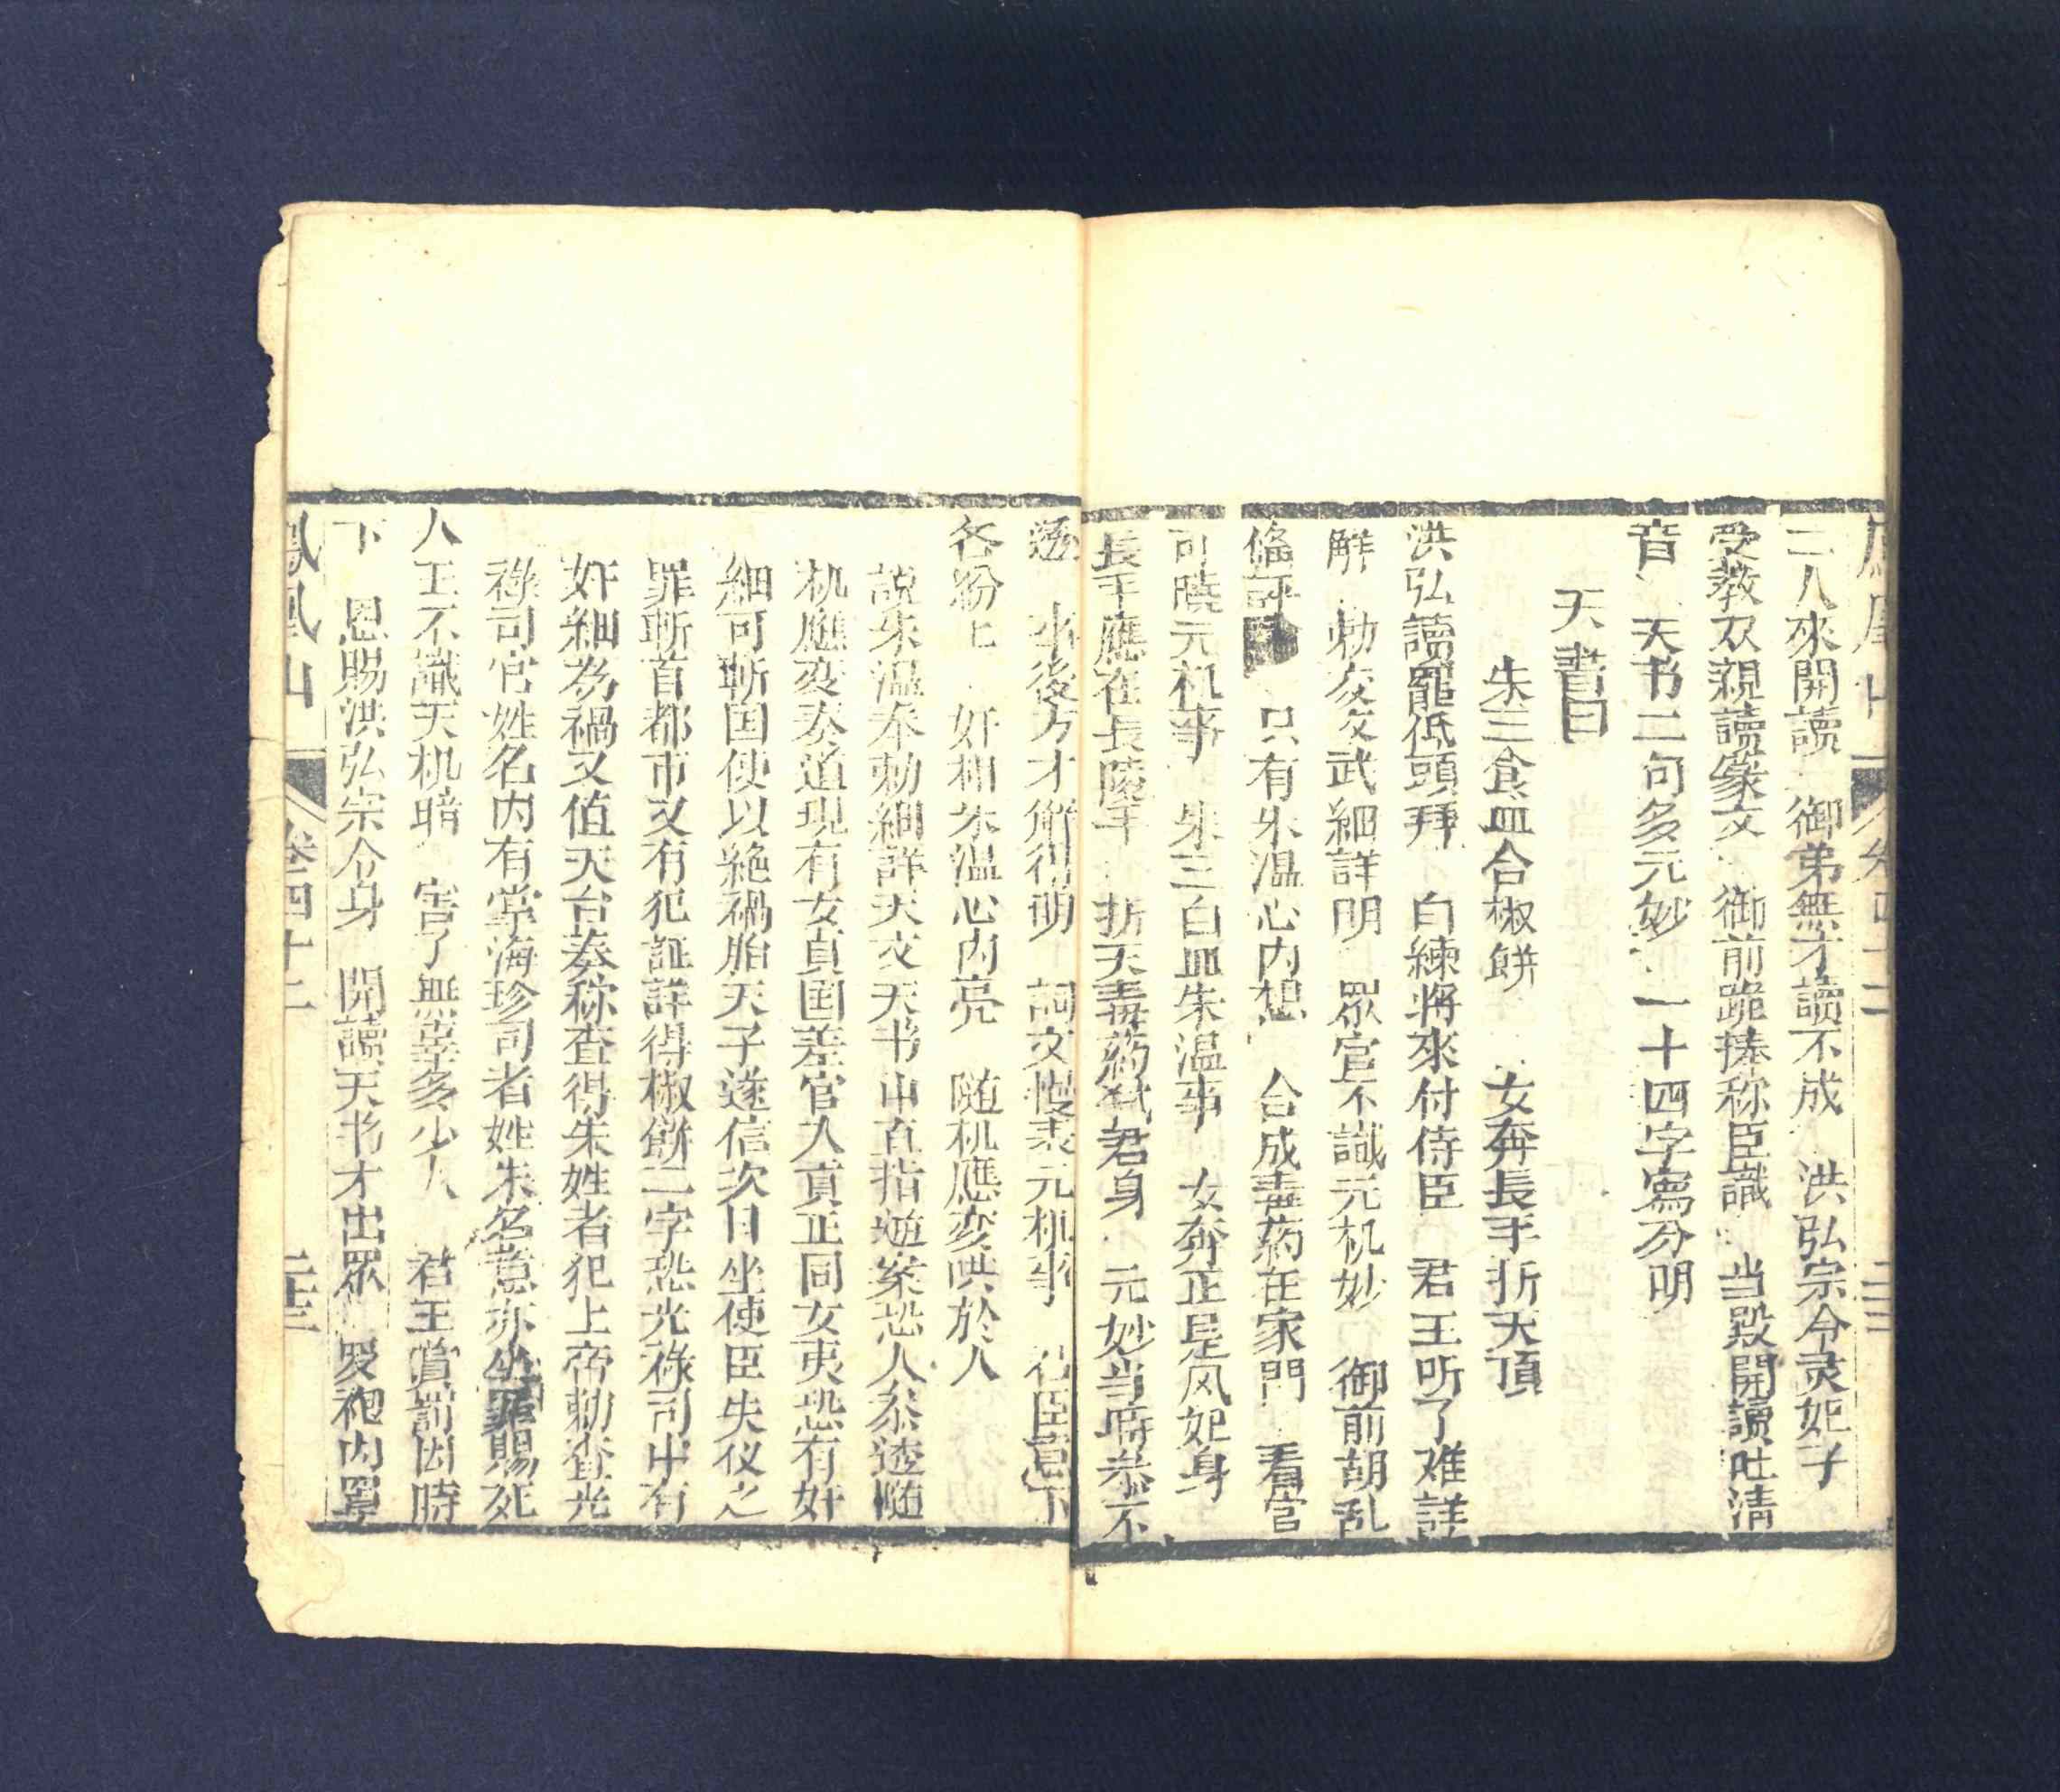 二人來開讀 御弟無才讀不成 洪弘宗令灵妃子
受教双親讀篆文 御前跪捧称臣識 当毀開讀吐清
音 天书二句多元妙 一十四字寫分明
天書曰
朱三食血合椒餅 女奔長手折天頂
洪弘讀罷低頭拜 白練將來付侍臣 君王听了难詳
解 勅交文武細詳明 眾官不識元机妙 御前胡乱
條評 只有朱温心内想 合成毒药在家門 看官
可曉元机事 朱三白血朱温事 女奔正是风妃身
長手應在長陵王 折天毒药弑君身 元妙当時恭不
透 事後方才觧得明 詞文慢表元机事 君臣意下
各紛纭 奸相朱温心内亮 随机應变哄於人
說朱温奉勅細詳天文天书中直指通案恐人泰透随
机應变奏道現有女真国差官入貢正同女夷恐有奸
細可斬国使以絶禍胎天子遂信次日坐使臣失仪之
罪斬首都市又有犯証詳得椒餅二字恐光禄司中有
奸細為禍又值天台奏称查得朱姓者犯上帝勅查光
禄司官姓名内有掌海珍司者姓朱名意亦坐罪賜死
人王不識天机暗 害了無辜多少人 君王賞罰因時
下 恩賜洪弘宗令身 開讀天书才出眾 受袍内罩
鳳凰山 卷四十二 二十三